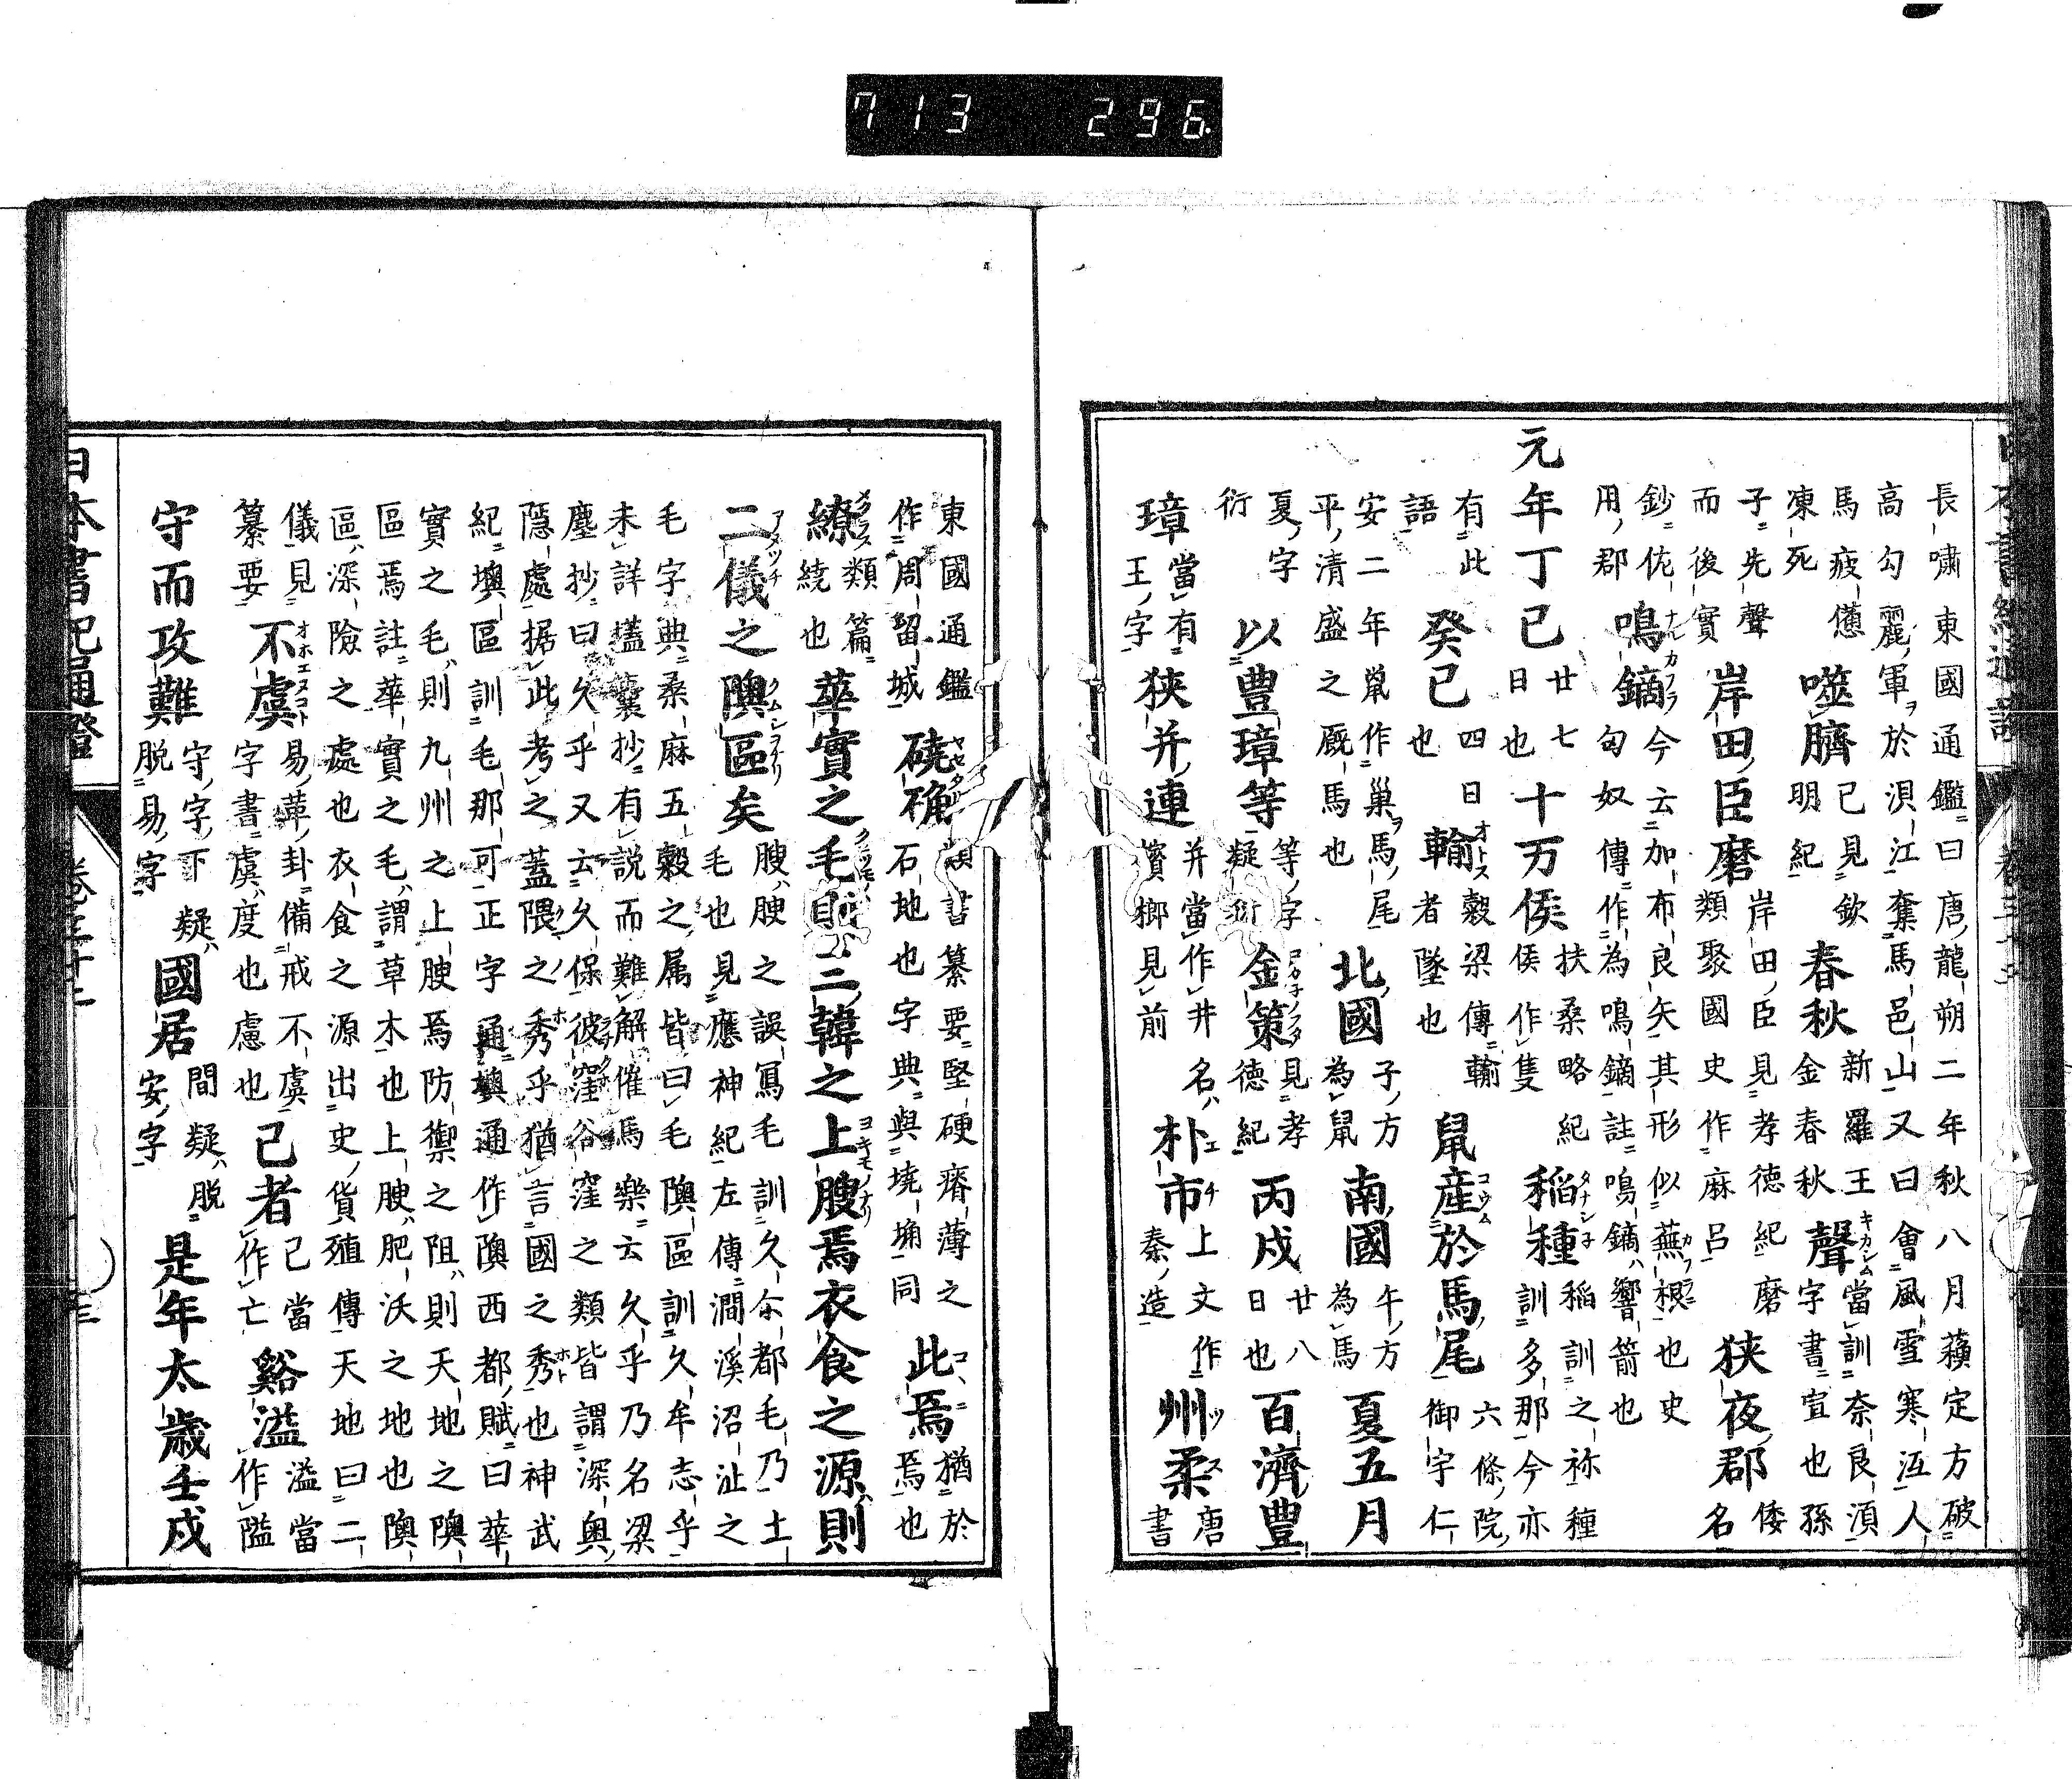 713 296
長嘯東國通鑑曰唐龍朔二年秋八月蘓定方破
高勾麗軍於浿江奪馬邑山又曰會風雪寒沍人
馬疲億
凍死
噬臍
已見欽
明紀
春秋
新羅王
金春秋
聲
當訓奈良湏
字書宣也孫
子先聲
而後實
岸田臣磨
岸田臣見孝德紀磨
類聚國史作麻呂
狭夜郡
倭
名
鈔佐
用郡
鳴鏑
今云加布良矢其形似蕪根也史
匈奴傳作為鳴鏑註鳴鏑響箭也
元年丁巳
廿七
日也
十万侯
扶桑略紀
侯作隻
稲種
稲訓之祢種
訓多那今亦
有此
語
癸已
四日
也
輸
穀梁傳輸
者墜也
鼠産於馬尾
六條院
御宇仁
安二年鼠作巢馬尾
平清盛之厩馬也
北國
子方
為鼠
南國
午方
為馬
夏五月
夏字
衍
以豊璋等
等字
疑衍
金策
見孝
德紀
丙戍
廿八
日也
百濟豊
璋
當有
王字
狭井連
并當作井名
檳榔見前
朴市
上文作
秦造
州柔
唐
書
東國通鑑
作周留城
磽确
類書纂要堅硬瘠薄之
石地也字典與墝埆同
此焉
猶於
焉也
繚
類篇
繞也
華實之毛則三韓之上腴焉衣食之源則
二儀之隩區矣
腴腴之誤冩毛訓久尓都毛乃土
毛也見應神紀左傳澗溪沼沚之
毛字典桑麻五穀之属皆曰毛隩區訓久牟志乎
未詳壒囊抄有説而難解催馬樂云久乎乃名梁
塵抄曰久乎又云久保彼窪谷窪之類皆謂深奥
隱處据此考之蓋隈之秀乎猶言國之秀也神武
紀墺區訓毛那可正字通墺通作隩西都賦曰華
實之毛則九州之上腴焉防禦之阻則天地之隩
區焉註華實之毛謂草木也上腴肥沃之地也隩
區深險之處也衣食之源出史貨殖傳天地曰二
儀見
纂要
不虞
易萃卦備戒不虞
字書虞度也慮也
已者
已當
作亡
谿溢
溢當
作隘
守而攻難
守字下疑
脱易字
國居
間疑脱
安字
是年太歳壬戍
日本書紀通證
三